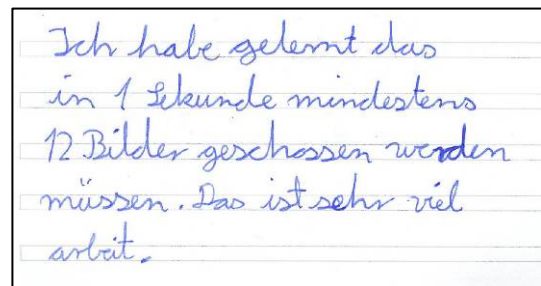 Ich habe gelernt das
in 1 Sekunde mindestens
12 Bilder geschossen werden
müssen. Das ist sehr viel
arbeit.